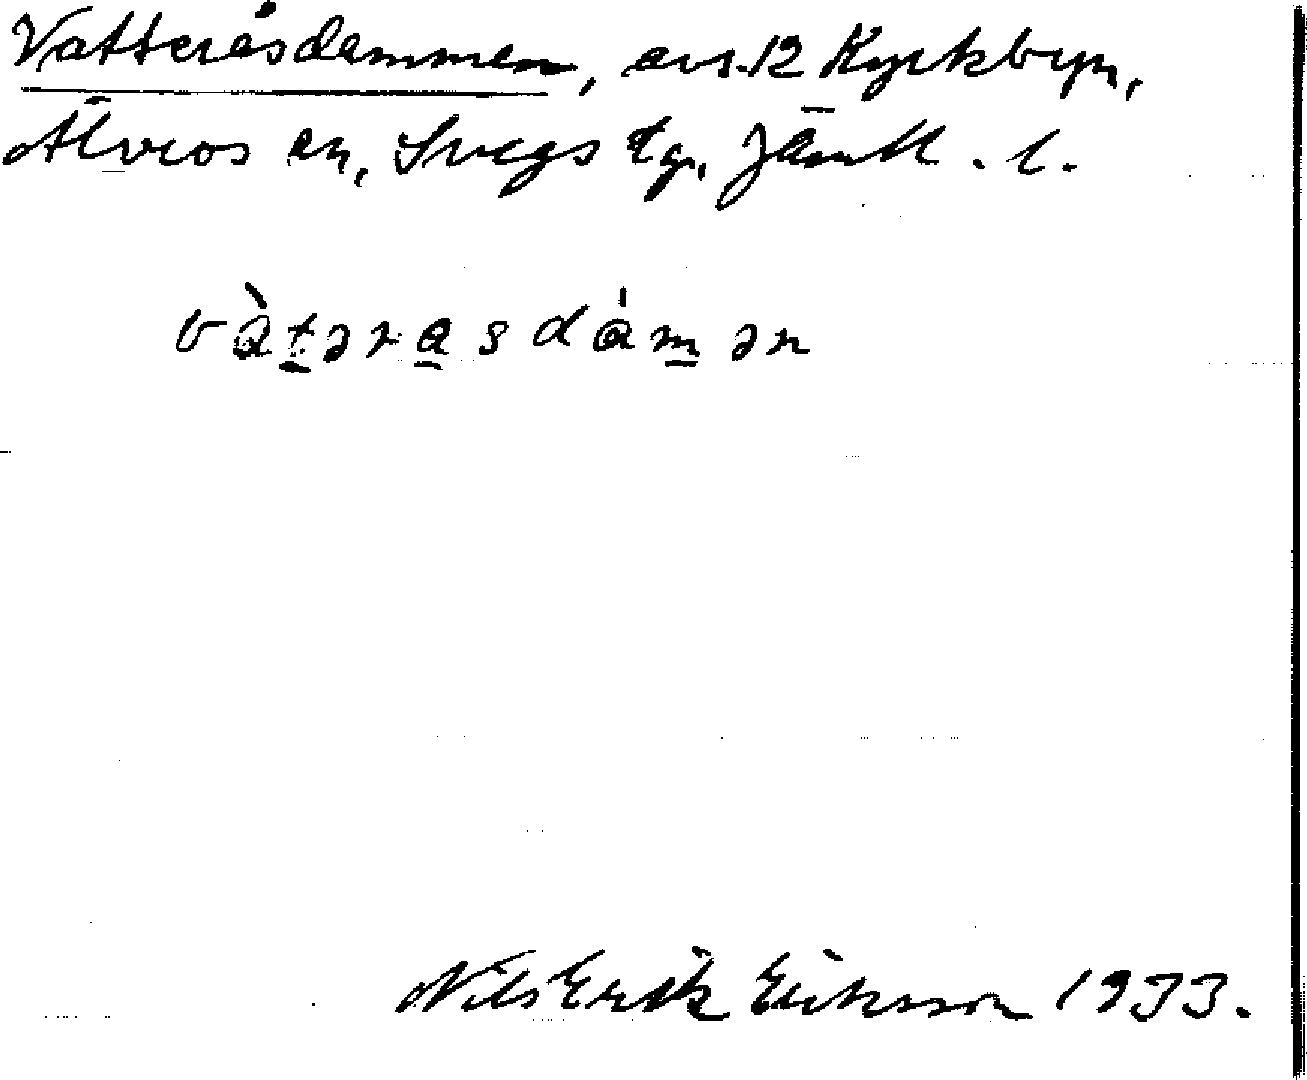 Vatteråsdammen, avs. 12 Kyrkbyn,
Älvros sn, Svegs tg, Jämtl. l.
vàt̲əra̲sdám̲ən
Nils Erik Eriksson 1933.